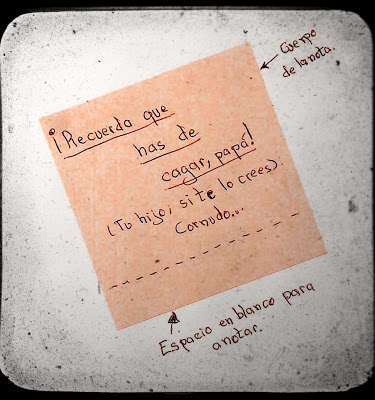 cuerpo
de la nota.
¡Recuerda que
has de
cagar, papá!
(Tu hijo, si te lo crees).
Cornudo...
Espacio en blanco para
anotar.